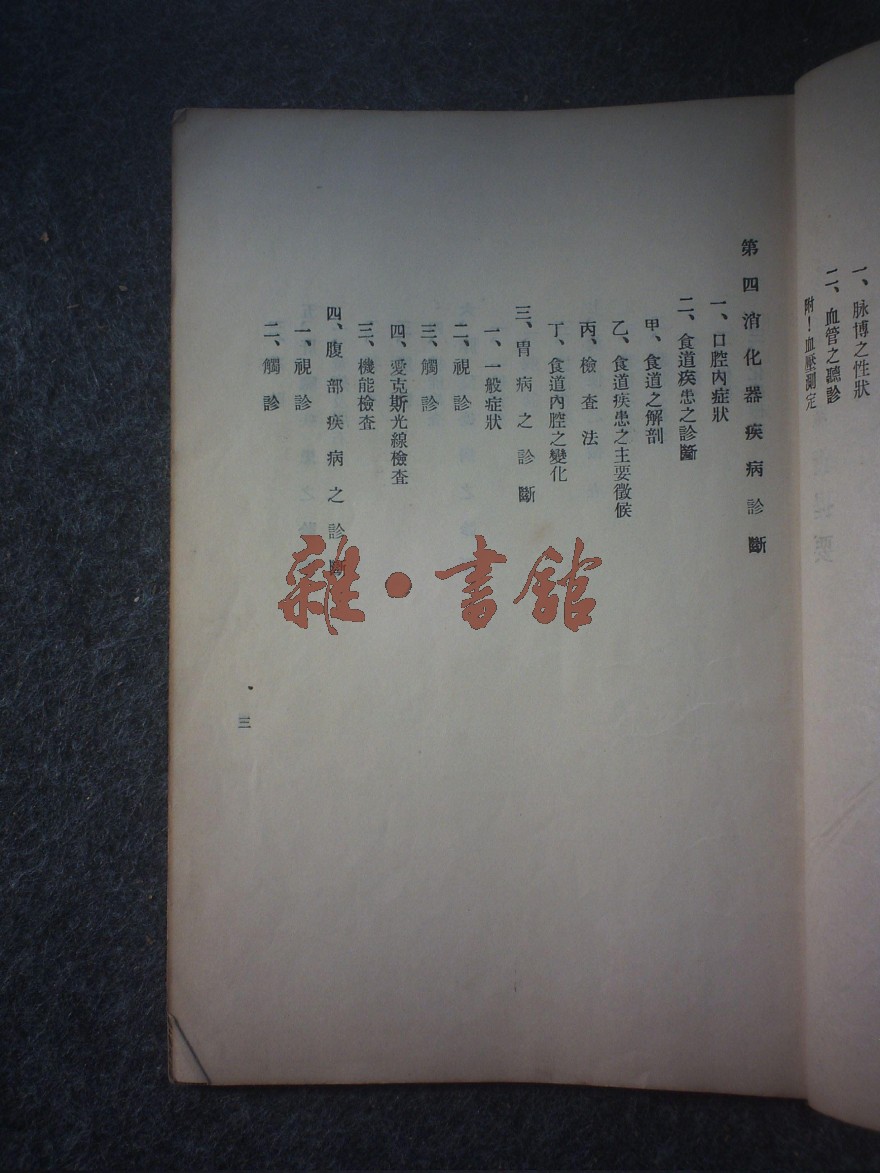 一、脉博之性狀
二、血管之聽診
附！血壓測定
第四消化器疾病診斷
一、口腔內症狀
二、食道疾患之診斷
甲、食道之解剖
乙、食道疾患之主要徵候
丙、檢查法
丁、食道內腔之變化
三、胃病之診斷
一、一般症狀
二、視診
三、觸診
四、愛克斯光線檢查
三、機能檢查
四、腹部疾病之診斷
一、視診
二、觸診
三
雜·書館